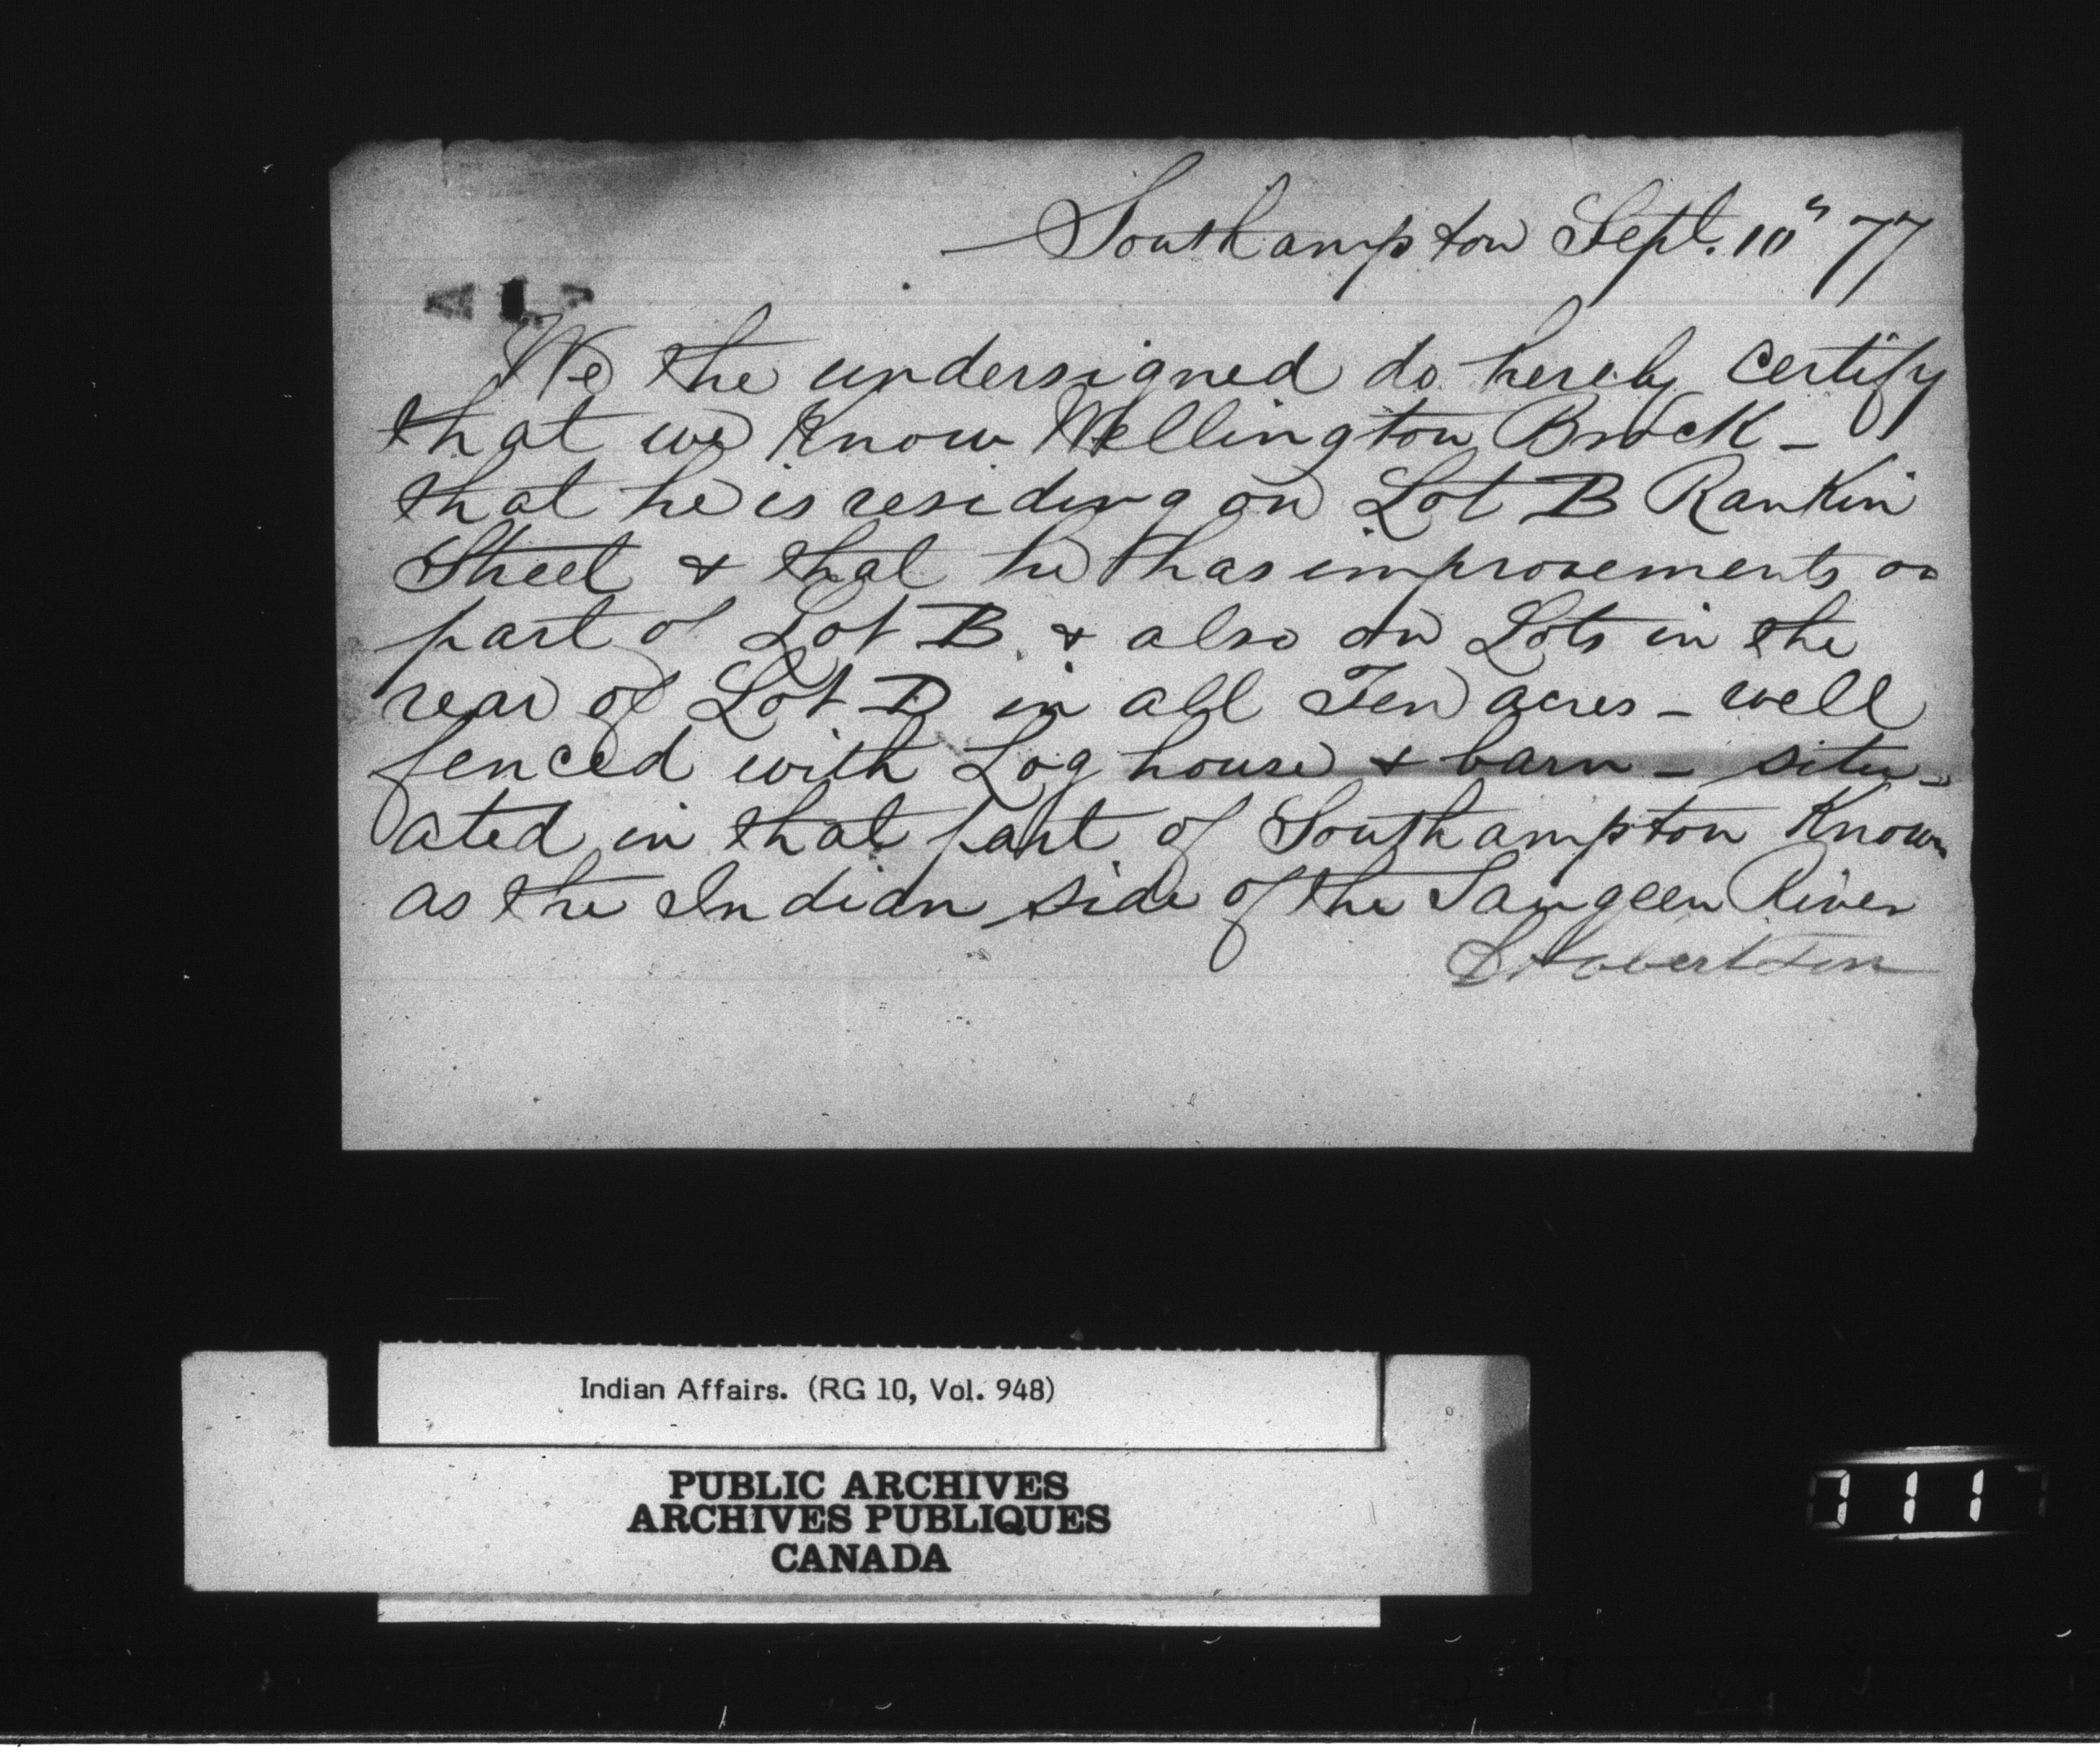 Southampton Sept. 10" 77
We the undersigned do hereby certify
that we Know Wellington Brock -
that he is residing on Lot B Rankin
Street & that he has improvements on
part of Lot B. & also on Lots in the
rear of Lot D in all Ten acres - well
fenced with Log house & barn - situ=
ated in that part of Southampton Known
as the Indian side of the Saugeen River
D Robertson
Indian Affairs. (RG 10, Vol. 948)
PUBLIC ARCHIVES
ARCHIVES PUBLIQUES
CANADA